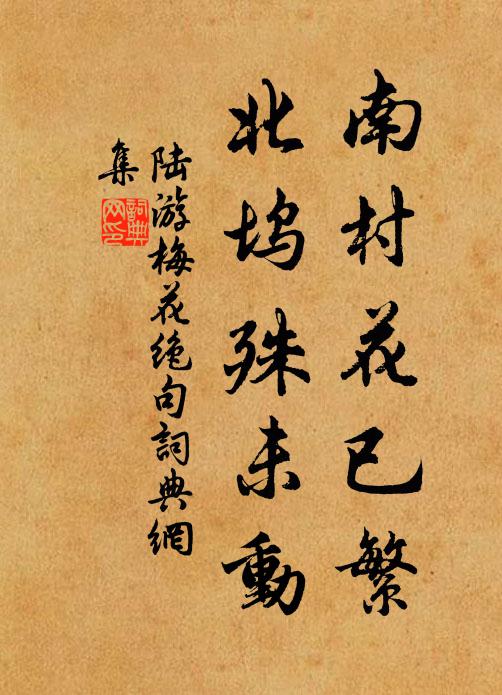 南村花已繁
北坞殊未動
陆游梅花绝句詞典網
集
詞典
网印